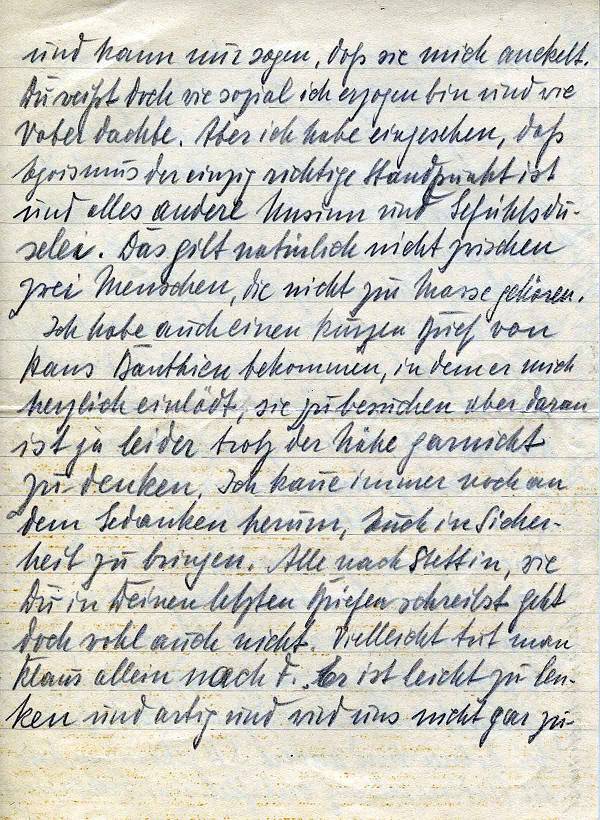 und kann nur sagen, daß sie mich anekelt.
Du weißt doch wie sozial ich erzogen bin und wie
Vater dachte. Aber ich habe eingesehen, daß
Egoismus der einzig richtige Standpunkt ist
und alles andere Unsinn und Gefühlsdu-
selei. Das gilt natürlich nicht zwischen
zwei Menschen, die nicht zur Masse gehören.
Ich habe auch einen kurzen Brief von
Hans bekommen, in dem er mich
herzlich einlädt, sie zu besuchen aber daran
ist ja leider trotz der Nähe garnicht
zu denken. Ich kaue immer noch an
dem Gedanken herum, Euch in Sicher-
heit zu bringen. Alle nach Stettin, wie
Du in Deinen letzten Briefen schreibst geht
doch wohl auch nicht. Vielleicht tut man
Klaus allein nach F. Er ist leicht zu len-
ken und artig und wird uns nicht gar zu